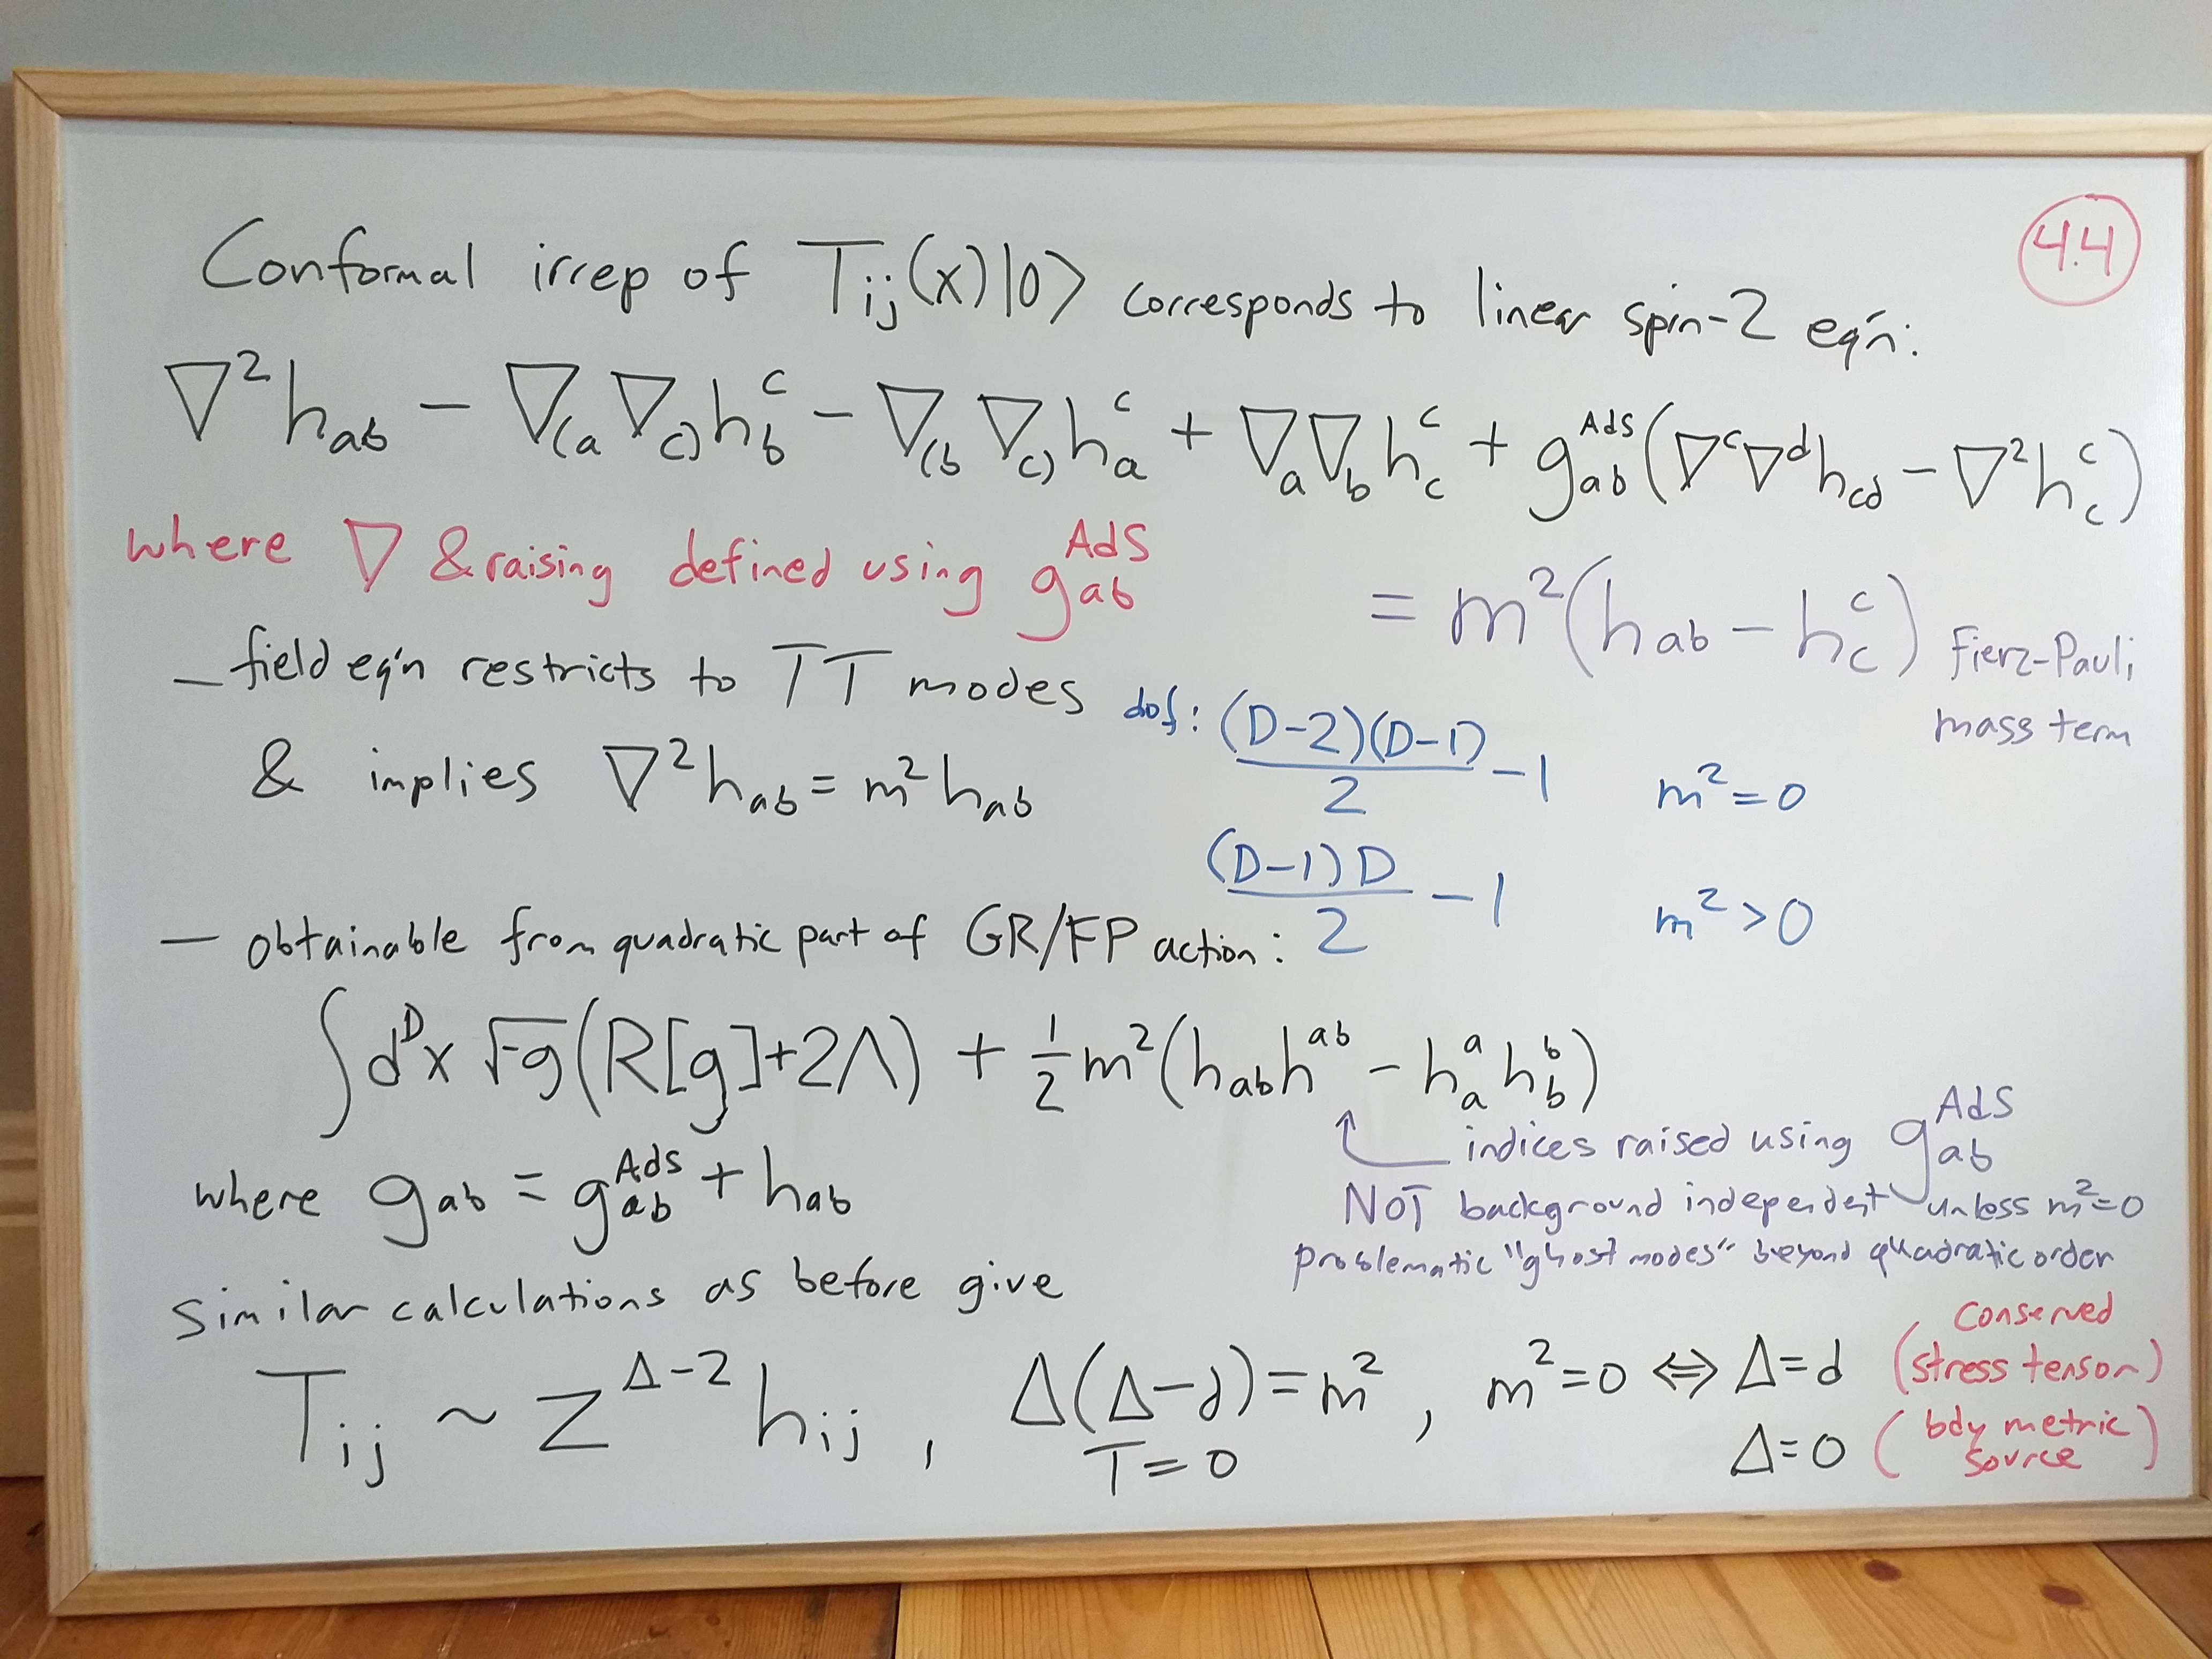 4.4
Conformal irrep of T_{ij}(x)|0⟩ corresponds to linear spin-2 eq'n:
∇²h_{ab} − ∇_{(a}∇_{c)}h_b^c − ∇_{(b}∇_{c)}h_a^c + ∇_a∇_b h_c^c + g_{ab}^{AdS}(∇^c∇^d h_{cd} − ∇²h_c^c)
where ∇ & raising defined using g_{ab}^{AdS}
= m²(h_{ab} − h_c^c) Fierz-Pauli
mass term
– field eq'n restricts to TT modes
& implies ∇²h_{ab} = m²h_{ab}
dof: (D−2)(D−1)/2 − 1 m²=0
(D−1)D/2 − 1 m²>0
– obtainable from quadratic part of GR/FP action:
∫d^Dx √-g(R[g]+2Λ) + ½m²(h_{ab}h^{ab} − h_a^a h_b^b)
indices raised using g_{ab}^{AdS}
where g_{ab} = g_{ab}^{AdS} + h_{ab}
NOT background independent unless m²=0
problematic "ghost modes" beyond quadratic order
similar calculations as before give
T_{ij} ~ z^{Δ−2} h_{ij} , Δ(Δ−d)=m² , m²=0 ⇔ Δ=d (conserved stress tensor)
T=0
Δ=0 (bdy metric source)